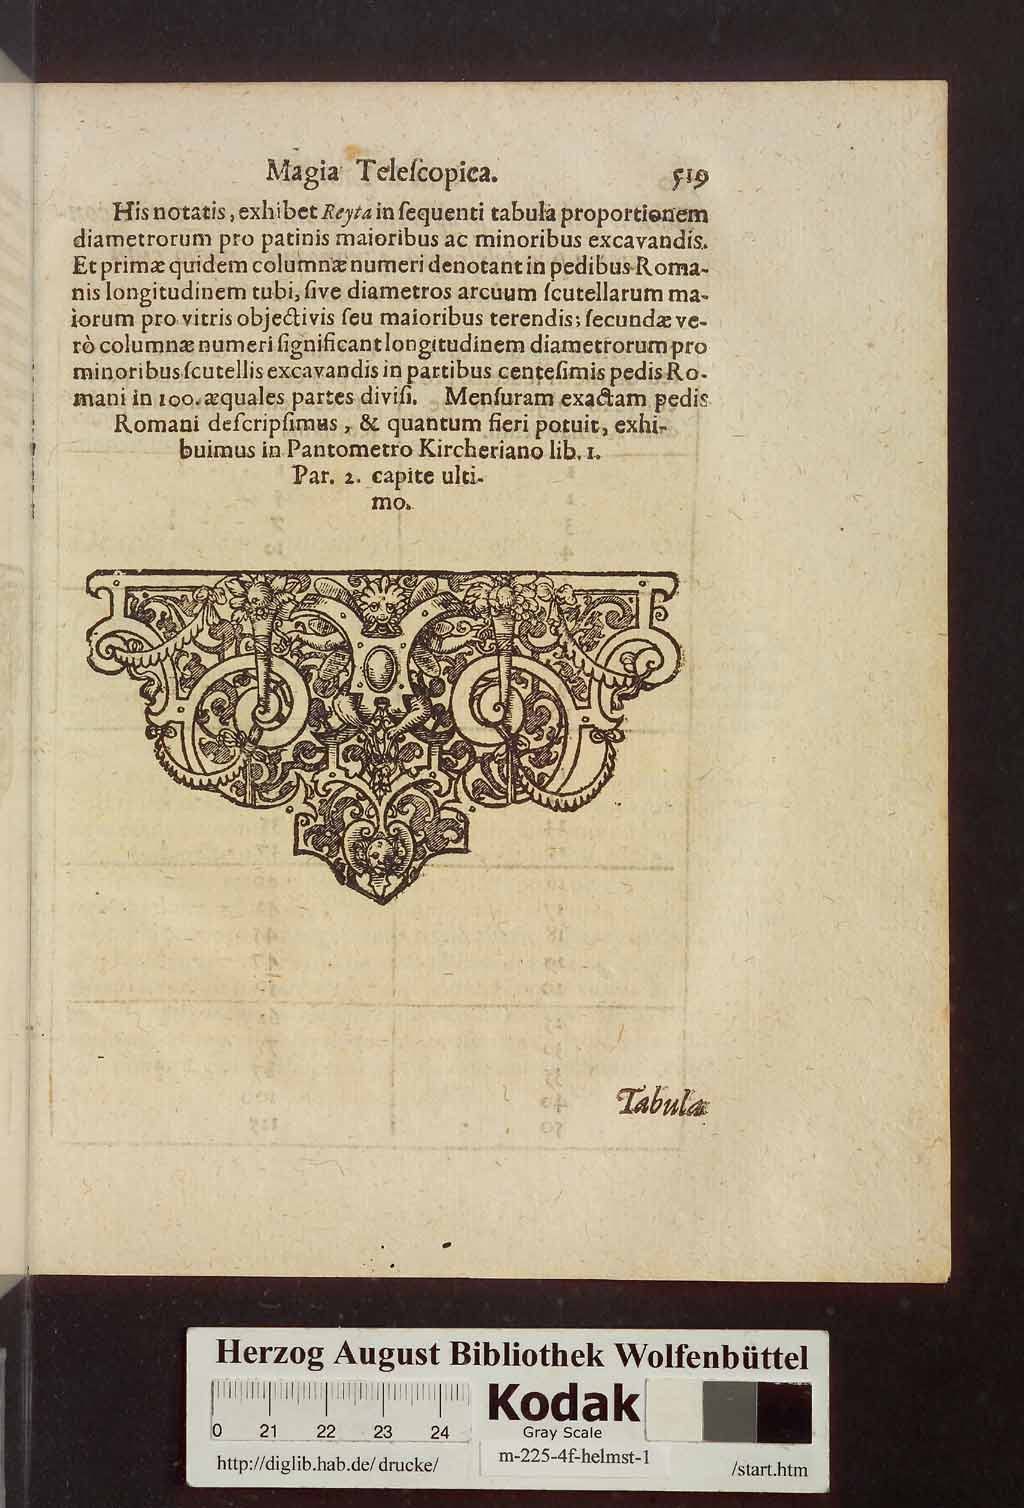 Magia Teleſcopica. 519
His notatis, exhibet Reyta in ſequenti tabula proportionem
diametrorum pro patinis maioribus ac minoribus excavandis.
Et primæ quidem columnæ numeri denotant in pedibus Roma-
nis longitudinem tubi, ſive diametros arcuum ſcutellarum ma-
iorum pro vitris objectivis ſeu maioribus terendis; ſecundæ ve-
rò columnæ numeri ſignificant longitudinem diametrorum pro
minoribus ſcutellis excavandis in partibus centeſimis pedis Ro-
mani in 100. æquales partes diviſi. Menſuram exactam pedis
Romani deſcripſimus, & quantum fieri potuit, exhi-
buimus in Pantometro Kircheriano lib. 1.
Par. 2. capite ulti-
mo.
Tabula
Herzog August Bibliothek Wolfenbüttel
Kodak
Gray Scale
0 21 22 23 24
m-225-4f-helmst-1
http://diglib.hab.de/drucke/
/start.htm